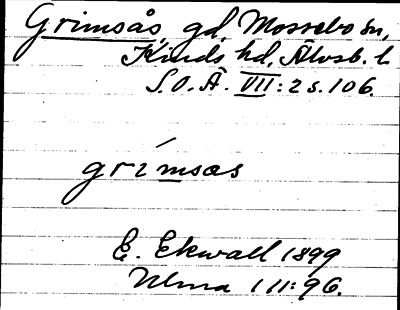 Grimsås, gd, Mossebo sn,
Kinds hd, Älvsb. l.
S.O.Ä. VII:2 s. 106.
grímsas
E. Ekwall 1899
Ulma 111:96.